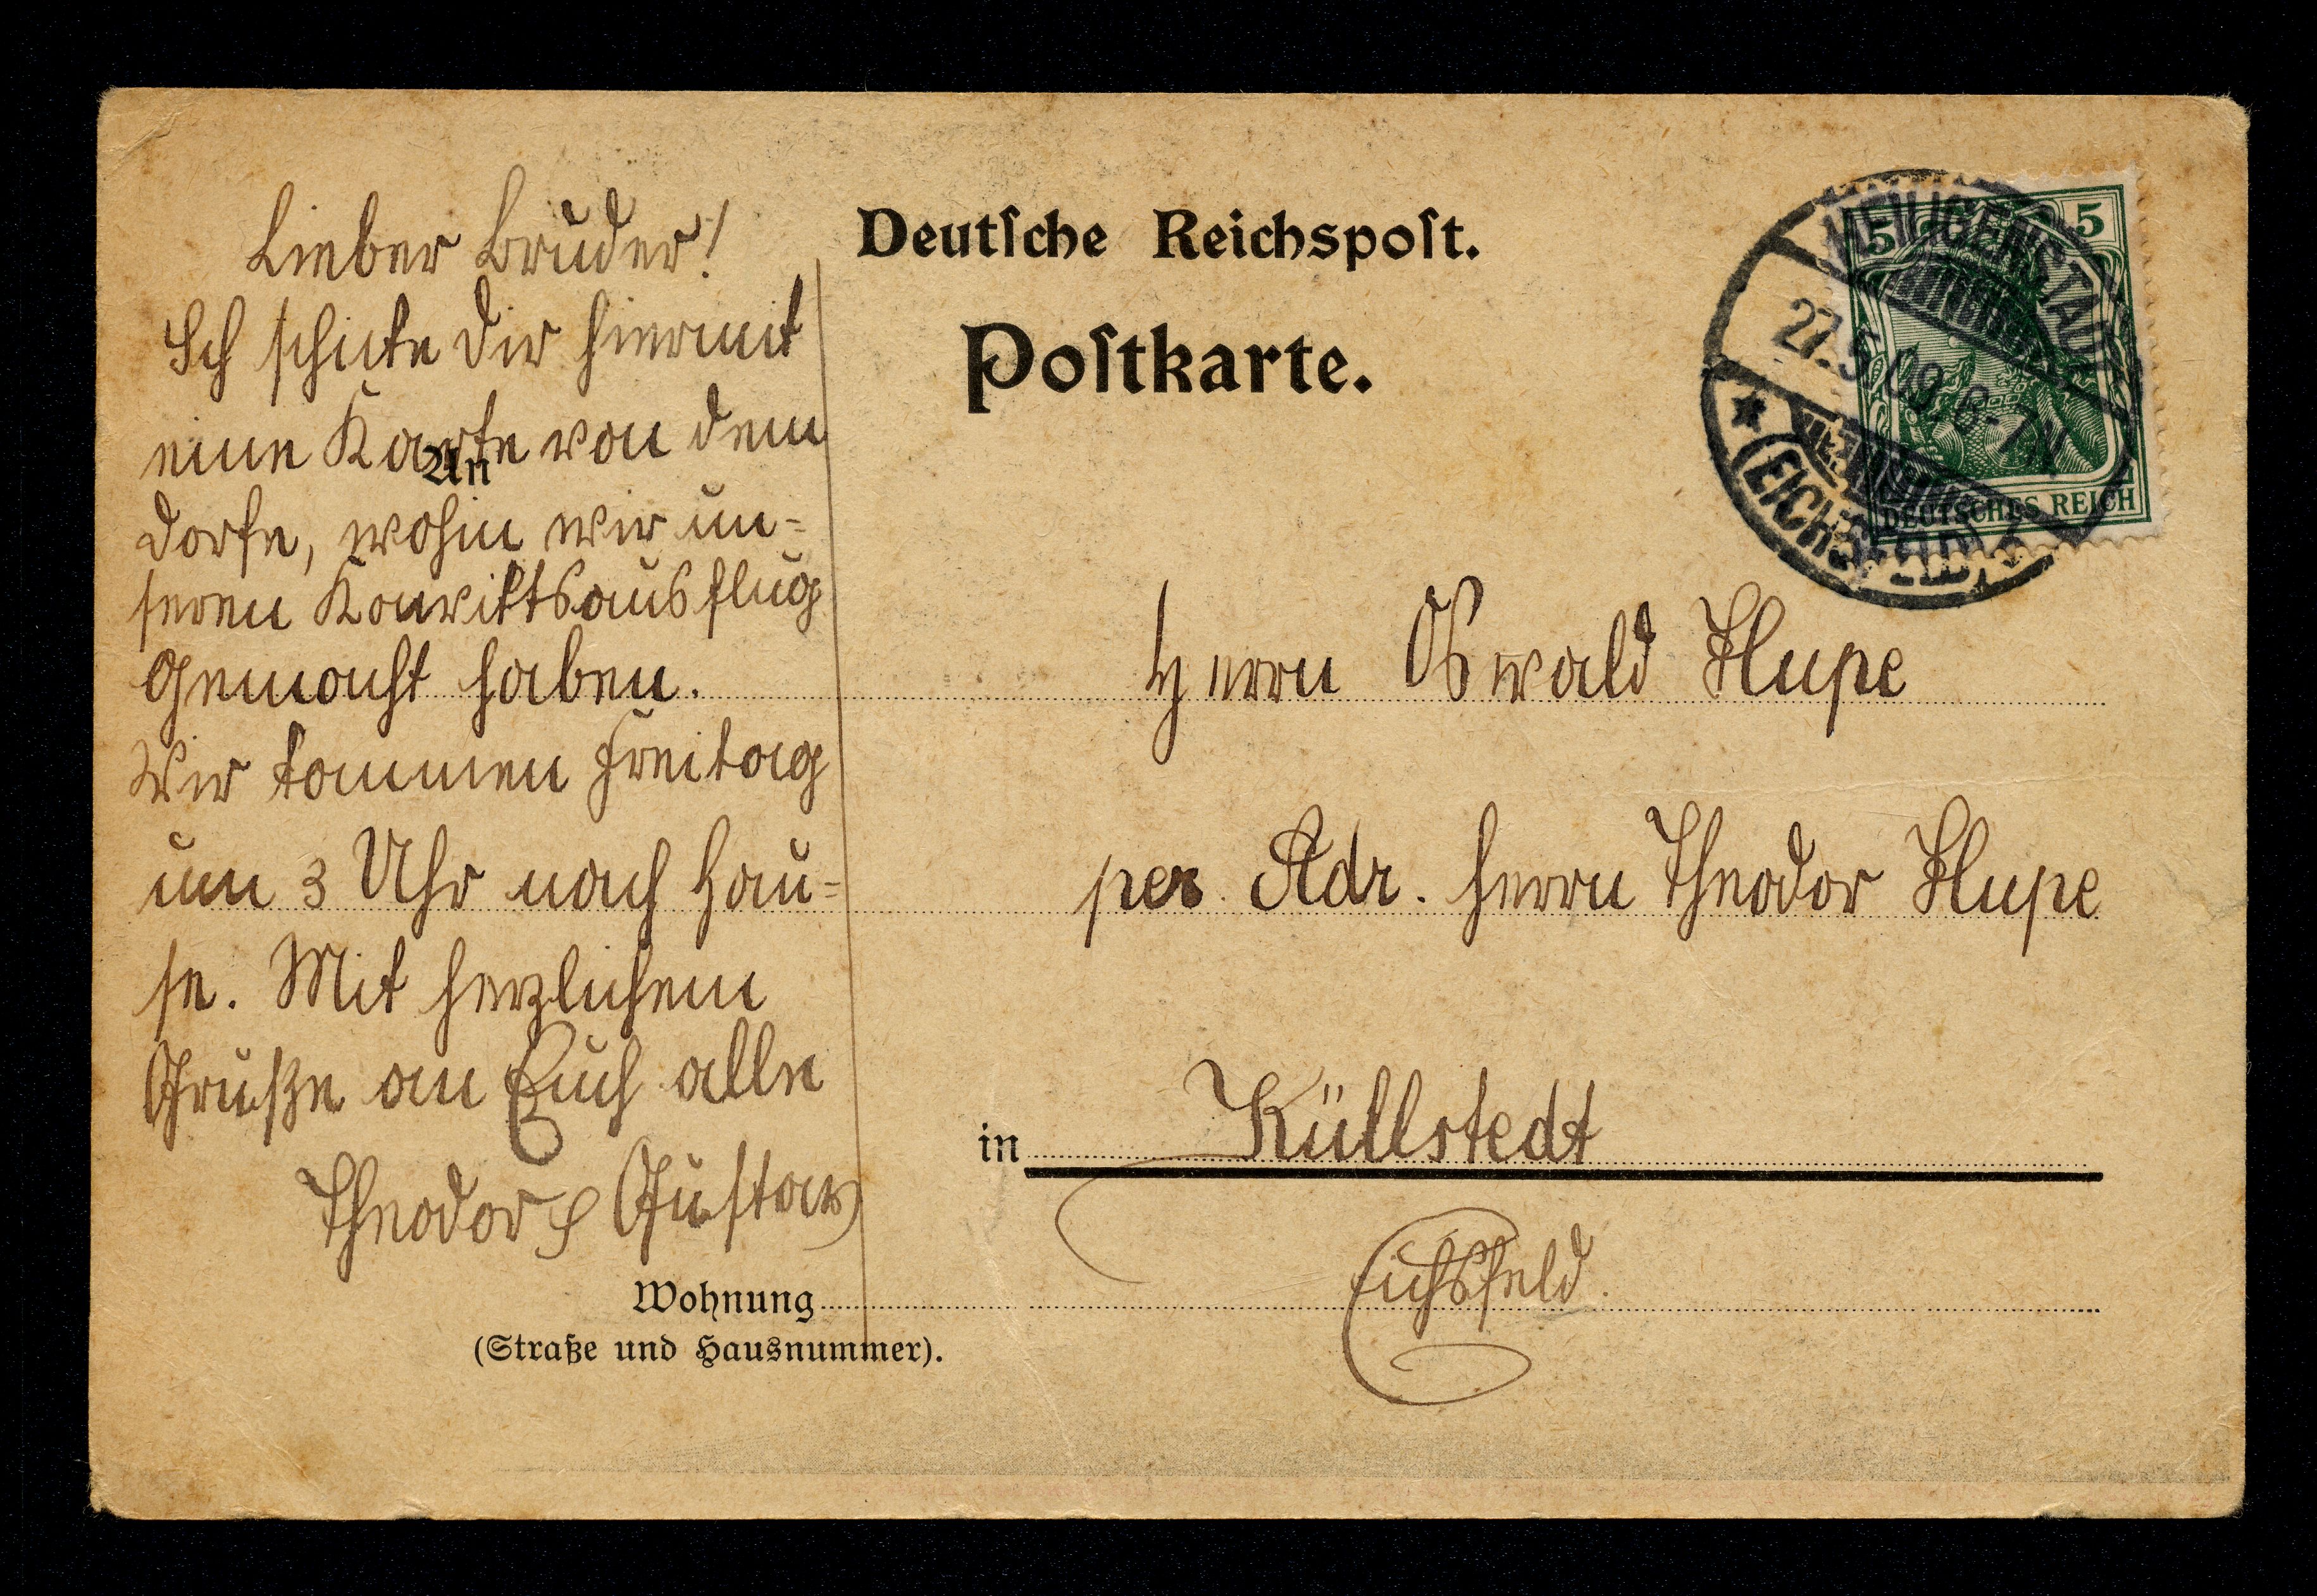 Lieber Bruder!
Ich schicke Dir hiermit
eine Karte von dem
Dorfe, wohin wir un=
seren Konviktsausflug
gemacht haben.
Wir kommen Freitag
um 3 Uhr nach Hau=
se. Mit herzlichem
Gruße an Euch alle
Theodor &amp; Gustav
Deutſche Reichspoſt.
Poſtkarte.
5 5
DEUTSCHES REICH
HEILIGENSTADT
27.5.09. 6-7 N.
(EICHSFELD)
An
Herrn Oswald Hupe
per Adr. Herrn Theodor Hupe
in Küllstedt
Eichsfeld.
Wohnung
(Straße und Hausnummer).